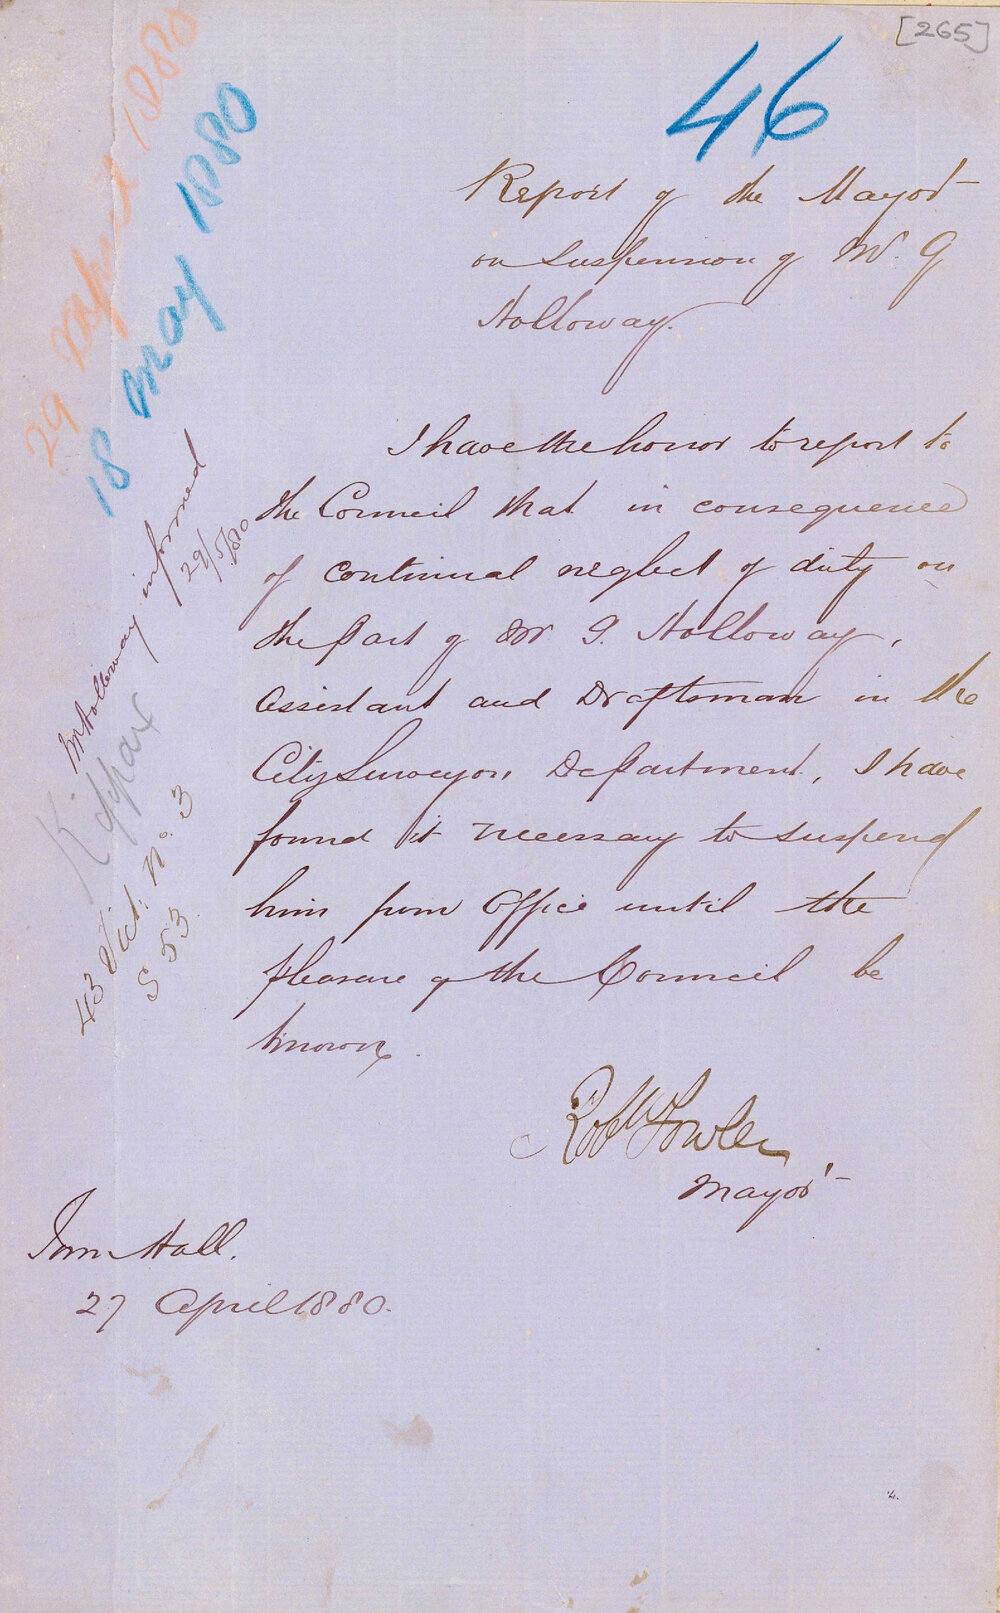 [265]
46
29 April 1880
18 May 1880
Report of the Mayor
on suspension of Mr. G
Holloway.
I have the honor to report to
the Council that in consequence
of continual neglect of duty on
the part of Mr G. Holloway,
Assistant and Draftsman in the
City Surveyors Department, I have
found it necessary to suspend
him from Office until the
pleasure of the Council be
known.
Robt Fowler
Mayor
Town Hall.
27 April 1880.
Mr Holloway informed
29/5/80
Kippax
43 Vict: No. 3
S 53